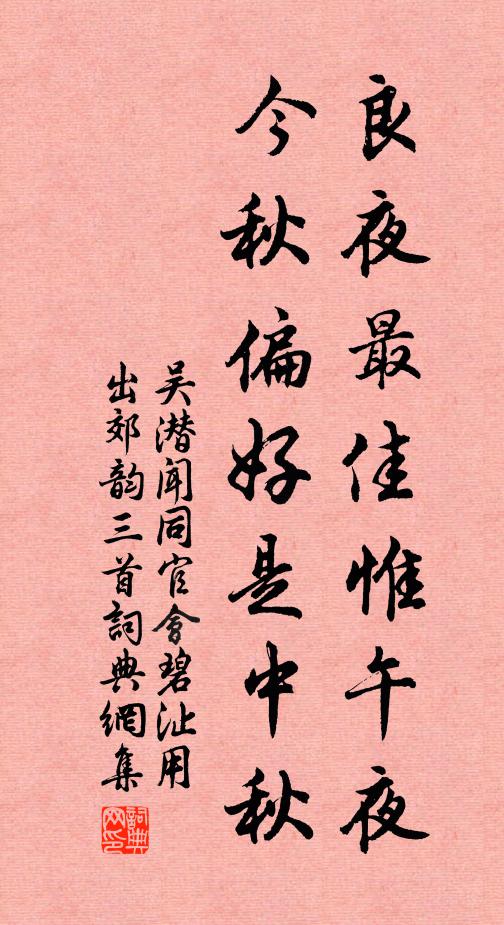 良夜最佳惟午夜
今秋偏好是中秋
吴潜闻同官會碧沚用
出郊韵三首詞典網集
詞典网印